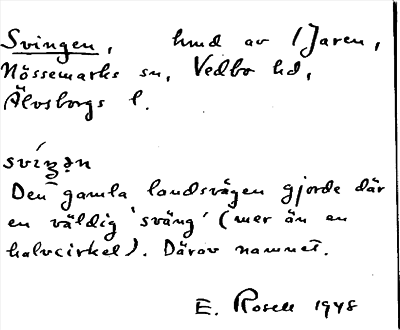 Svingen, hmd av 1 Jaren,
Nössemarks sn, Vedbo hd,
Älvsborgs l.
svíŋən
Den gamla landsvägen gjorde där
en väldig 'sväng' (mer än en
halvcirkel). Därav namnet.
E. Rosell 1948